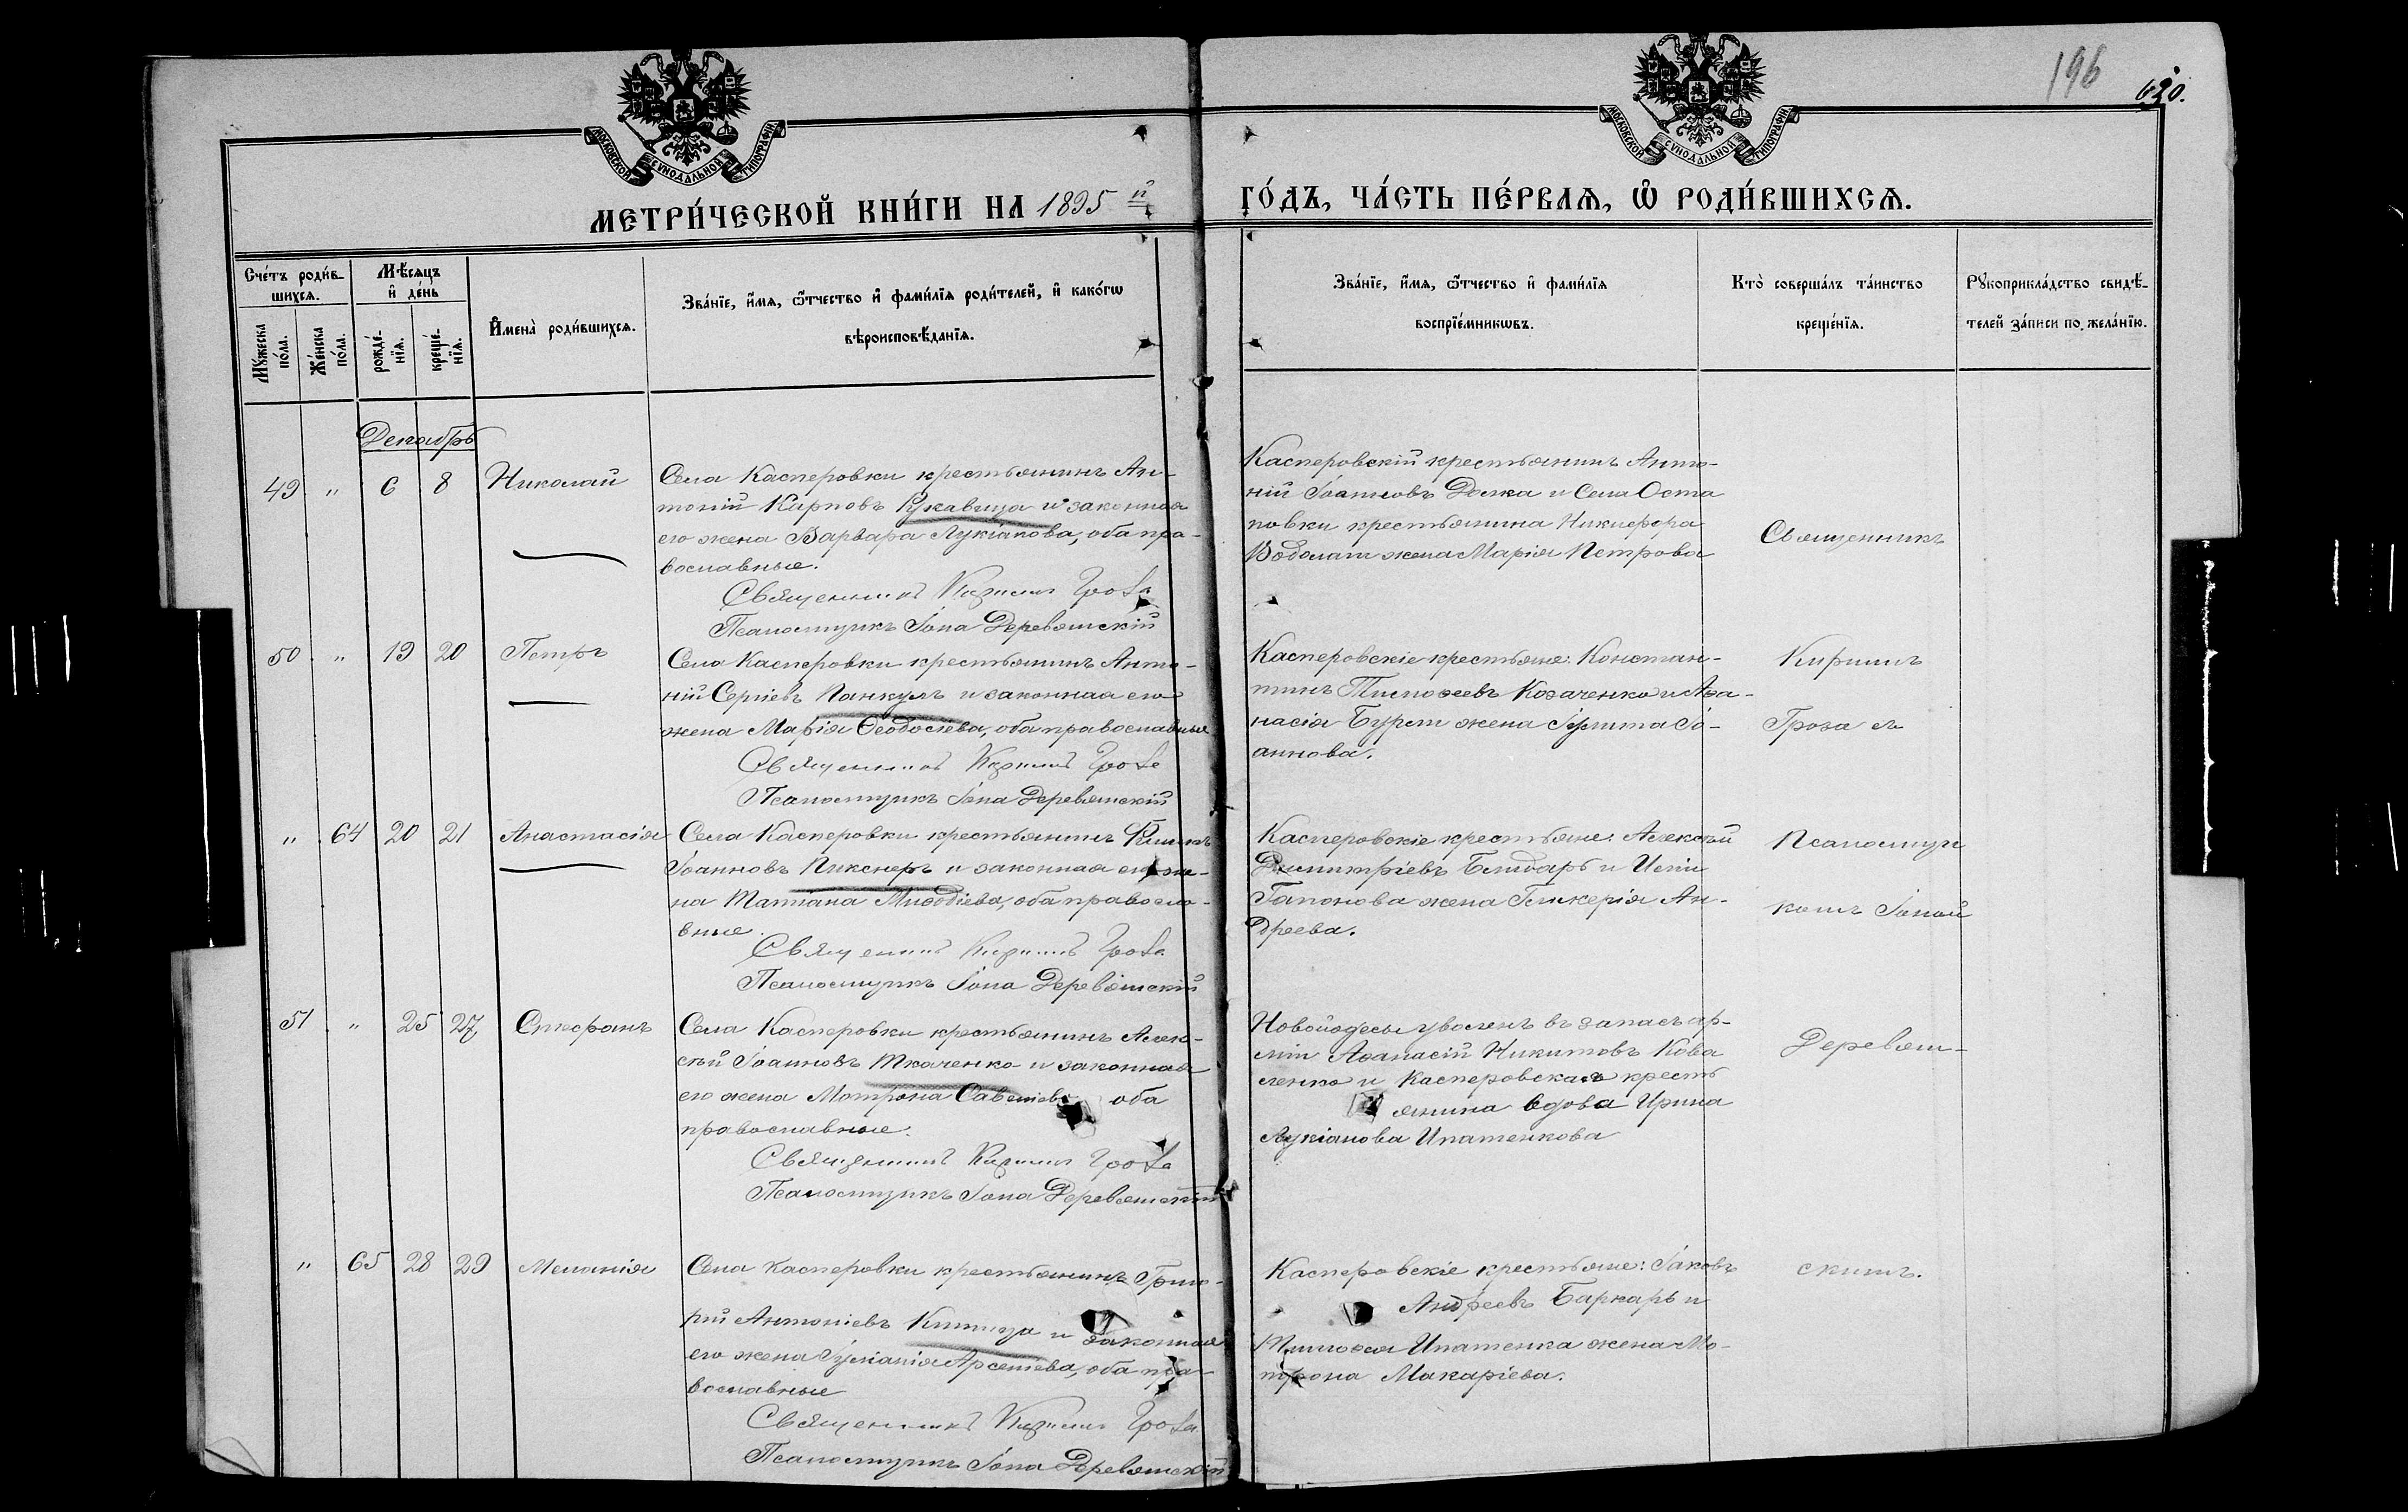 196
620.
МОСКОВСКОЙ СѴНОДАЛЬНОЙ ТИПОГРАФІИ
МОСКОВСКОЙ СѴНОДАЛЬНОЙ ТИПОГРАФІИ
МЕТРИ́ЧЕСКОЙ КНИ́ГИ НА 1895 й
ГО́ДЪ, ЧА́СТЬ ПЕ́РВАѦ, Ѡ҆ РОДИ́ВШИХСѦ.
Сче́тъ роди́в-
шихсѧ.
Мѣ́сѧцъ
и҆ де́нь
Мꙋ́жеска по́ла.
Же́нска по́ла.
рожде́-нїѧ.
креще́-нїѧ.
И҆мена̀ роди́вшихсѧ.
Зва́нїе, и҆́мѧ, ѻ҆́тчество и҆ фами́лїѧ роди́телей, и҆ како́гѡ
вѣроисповѣ́данїѧ.
Зва́нїе, и҆́мѧ, ѻ҆́тчество и҆ фами́лїѧ
воспрїе́мникѡвъ.
Кто̀ соверша́лъ та́инство
креще́нїѧ.
Рꙋкоприкла́дство свидѣ́-
телей за́писи по жела́нїю.
Декабрь
49 " 6 8 Николай
Села Касперовки крестьянинъ Ан-
тоній Карповъ Рукавица и законная
его жена Варвара Лукіанова, оба пра-
вославные.
Священникъ Кириллъ Гроза
Псаломщикъ Іона Деревянскій
Касперовскій крестьянинъ Анто-
ній Іоанновъ Должа и Села Оста
повки крестьянина Никифора
Водолаги жена Марія Петрова
Священникъ
50 " 19 20 Петръ
Села Касперовки крестьянинъ Анто-
ній Сергіевъ Панкулъ и законная его
жена Марія Ѳеодосіева, оба православные
Священникъ Кириллъ Гроза
Псаломщикъ Іона Деревянскій
Касперовскіе крестьяне: Констан-
тинъ Тимоѳеевъ Козаченко и Аѳа-
насія жена Іулитта Іо-
аннова.
Кириллъ
Гроза съ
" 64 20 21 Анастасія
Села Касперовки крестьянинъ Филиппъ
Іоанновъ Пикснеръ и законная его же-
на Татіана Меѳодіева, оба правосла-
вные.
Священникъ Кириллъ Гроза
Псаломщикъ Іона Деревянскій
Касперовскіе крестьяне: Алексѣй
Димитріевъ Блидарь и Иліи
Гапонова жена Гликерія Ан-
дреева.
Псаломщи
комъ Іоной
51 " 25 27 Стефанъ
Села Касперовки крестьянинъ Алек-
сѣй Іоанновъ Ткаченко и законная
его жена Матрона Савеліева оба
православные.
Священникъ Кириллъ Гроза
Псаломщикъ Іона Деревянскій
Новоодесы уволенъ въ запасъ ар-
міи Аѳанасій Никитовъ Кова
ленко и Касперовская кресть
янина вдова Ирина
Лукіанова Ипатенкова
Деревян-
" 65 28 29 Меланія
Села Касперовки крестьянинъ Григо-
рій Антоніевъ Кипица и законная
его жена Іуліанія Арсеніева, оба пра-
вославные
Священникъ Кириллъ Гроза
Псаломщикъ Іона Деревянскій
Касперовскіе крестьяне: Іаковъ
Андреевъ Баркарь и
Тимоѳея Ипатенка жена Ма-
трона Макаріева.
скимъ.